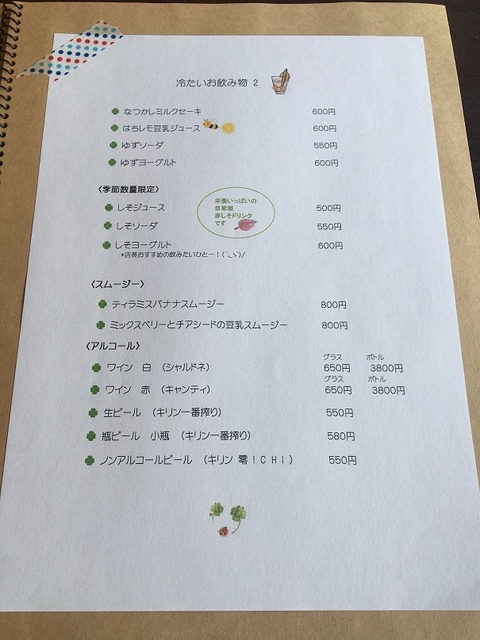 冷たいお飲み物 2
なつかしミルクセーキ 600円
はちレモ豆乳ジュース 600円
ゆずソーダ 550円
ゆずヨーグルト 600円
〈季節数量限定〉
栄養いっぱいの
自家製
赤しそドリンク
です
しそジュース 500円
しそソーダ 550円
しそヨーグルト 600円
*店長おすすめの飲みたいひとー！(˘◡˘)/
〈スムージー〉
ティラミスバナナスムージー 800円
ミックスベリーとチアシードの豆乳スムージー 800円
〈アルコール〉
グラス ボトル
ワイン 白 （シャルドネ） 650円 3800円
グラス ボトル
ワイン 赤 （キャンティ） 650円 3800円
生ビール （キリン一番搾り） 550円
瓶ビール 小瓶 （キリン一番搾り） 580円
ノンアルコールビール （キリン 零ＩＣＨＩ） 550円